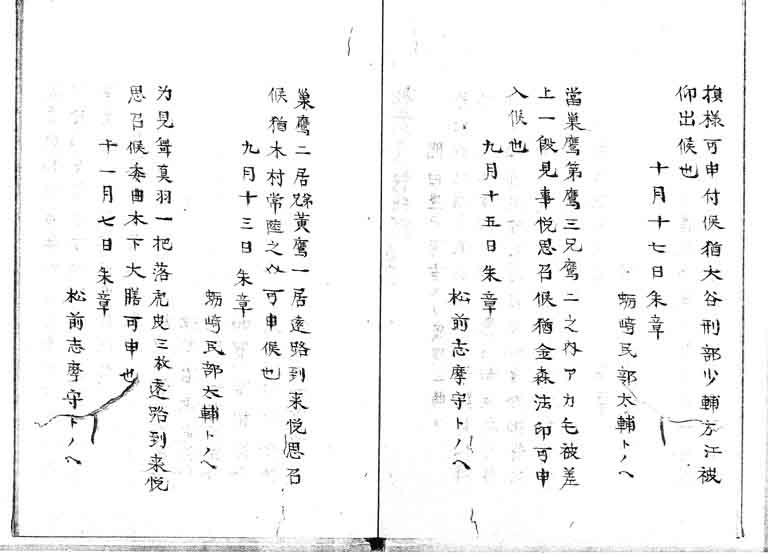 模様可申付候猶大谷刑部少輔方江被
仰出候也
十月十七日朱章
蛎崎民部太輔トノヘ
當巣鷹第鷹三兄鷹二之内アカ毛被差
上一段見事悦思召候猶金森法印可申
入候也
九月十五日朱章
松前志摩守トノヘ
巣鷹二居黄鷹一居遠路到来悦思召
候猶木村常陸之介可申候也
九月十三日朱章
蛎崎民部太輔トノヘ
為見舞真羽一把落虎皮三枚遠路到来悦
思召候委曲木下大膳可申也
十一月七日朱章
松前志摩守トノヘ